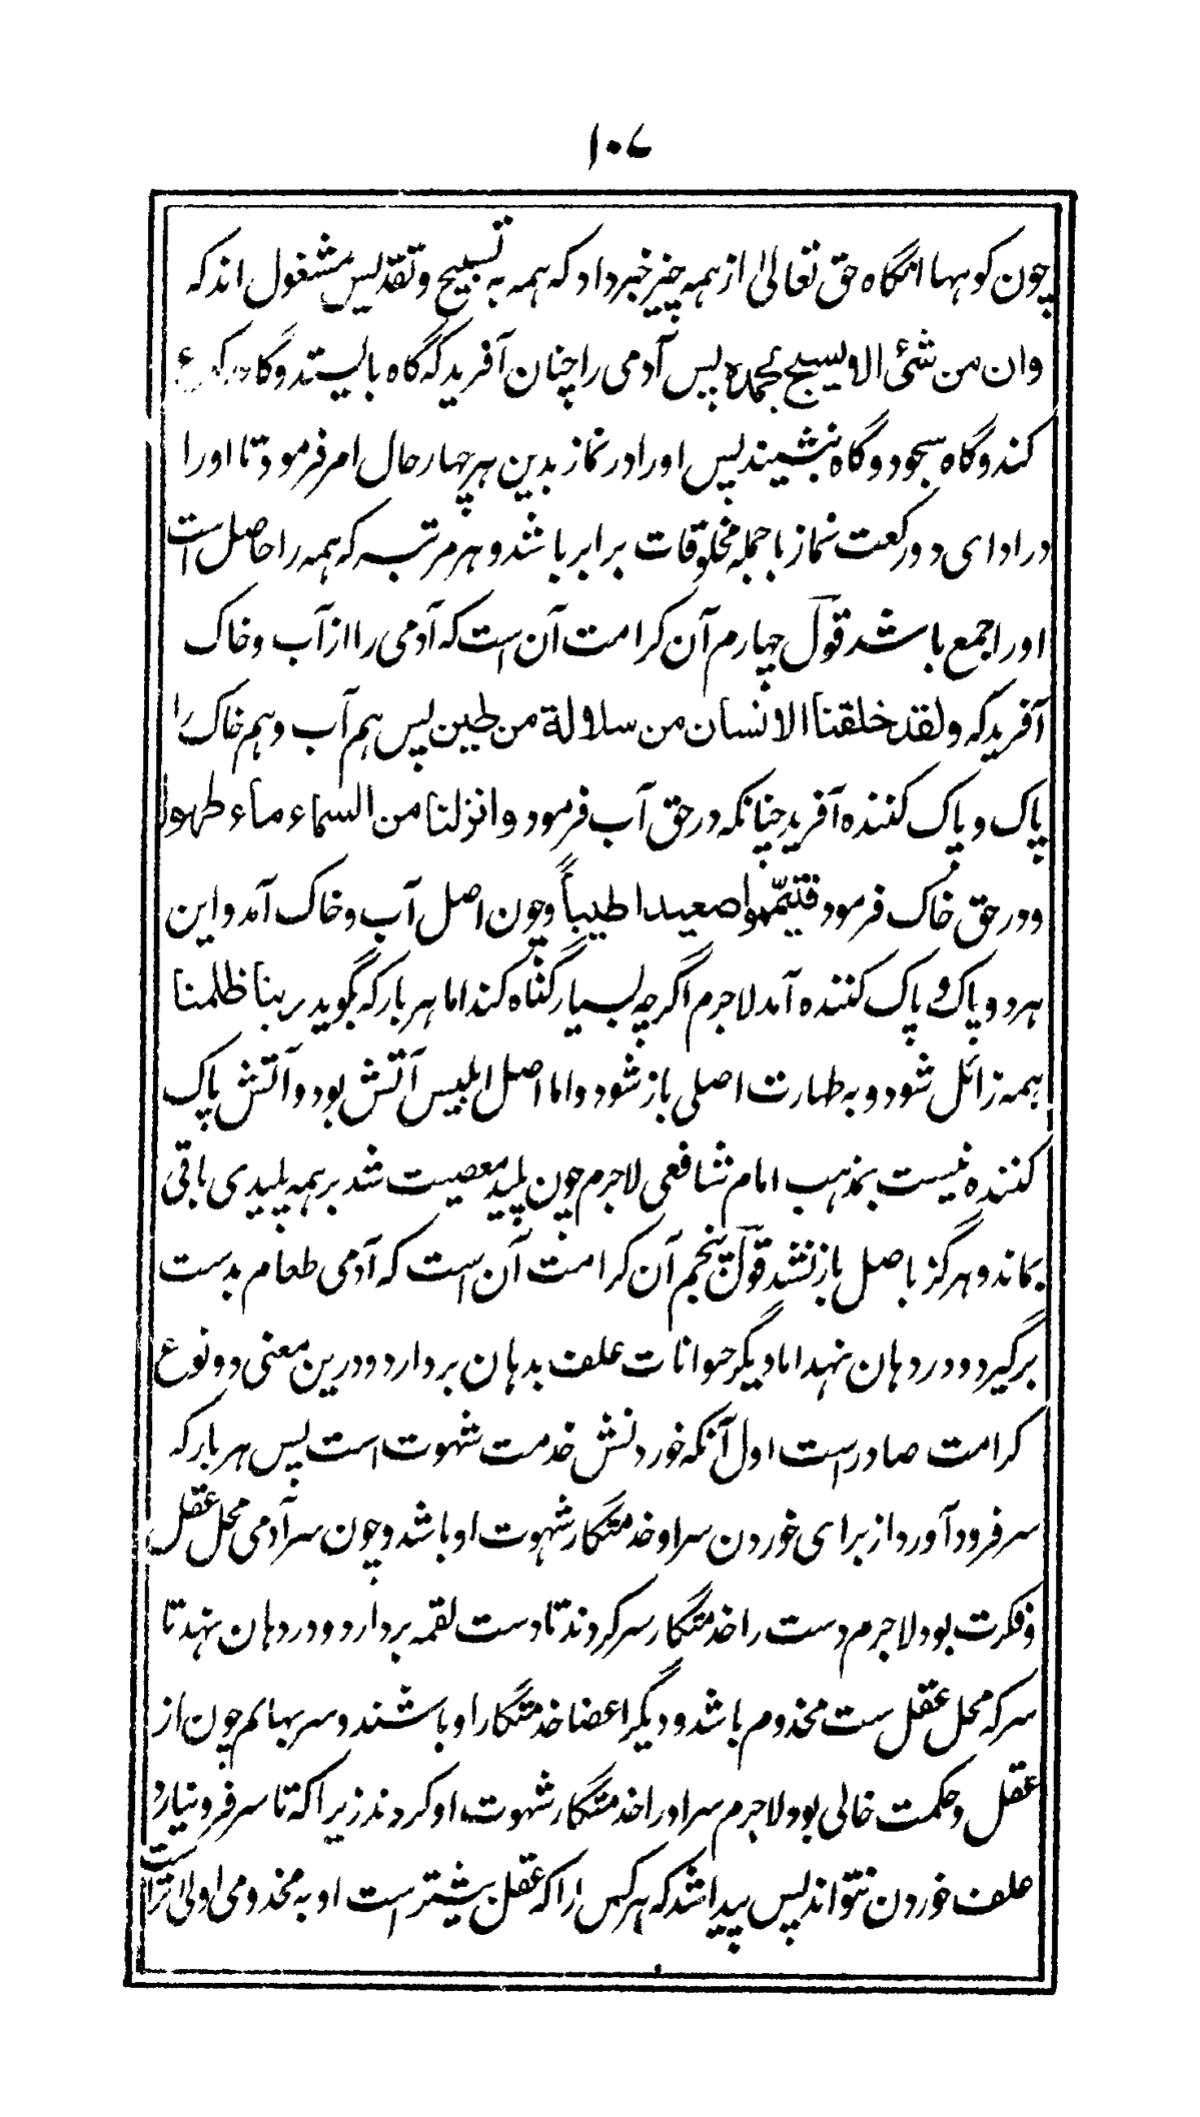 ۱۰۷
چون کوهها آنگاه حق تعالیٰ از همه چیز خبر داد که همه به تسبیح و تقدیس مشغول اند که
وان من شئ الا یسبح بحمده پس آدمی را چنان آفرید که گاه بایستد و گاه رکوع
کند و گاه سجود و گاه بنشیند پس او را در نماز بدین هر چهار حال امر فرمود تا او را
در ادای دو رکعت نماز با جمله مخلوقات برابر باشد و هر مرتبه که همه را حاصل است
او را جمع باشد قول چهارم آن کرامت آن است که آدمی را از آب و خاک
آفرید که ولقد خلقنا الانسان من سلالة من طین پس هم آب و هم خاک را
پاک و پاک کننده آفرید چنانکه در حق آب فرمود وانزلنا من السماء ماء طهورا
و در حق خاک فرمود فتیمّموا صعیدا طیباً و چون اصل آب و خاک آمد و این
هر دو پاک و پاک کننده آمد لاجرم اگرچه بسیار گناه کند اما هر بار که بگوید ربنا ظلمنا
همه زائل شود و به طهارت اصلی باز شود و اما اصل ابلیس آتش بود و آتش پاک
کننده نیست بمذهب امام شافعی لاجرم چون پلید معصیت شد بر همه پلیدی باقی
بماند و هرگز باصل باز نشد قول پنجم آن کرامت آن است که آدمی طعام بدست
برگیرد و در دهان نهد اما دیگر حیوانات علف بدهان بردارد و درین معنی دو نوع
کرامت صادر است اول آنکه خوردنش خدمت شهوت است پس هر بار که
سر فرود آورد از برای خوردن سر او خدمتگار شهوت او باشد و چون سر آدمی محل عقل
و فکرت بود لاجرم دست را خدمتگار سر کردند تا دست لقمه بردارد و در دهان نهد تا
سر که محل عقل ست مخدوم باشد و دیگر اعضا خدمتگار او باشند و سر بهائم چون از
عقل و حکمت خالی بود لاجرم سر او را خدمتگار شهوت او کردند زیرا که تا سر فرو نیارد
علف خوردن نتواند پس پیدا شد که هر کس را که عقل بیشتر است او به مخدومی اولیٰ تر است